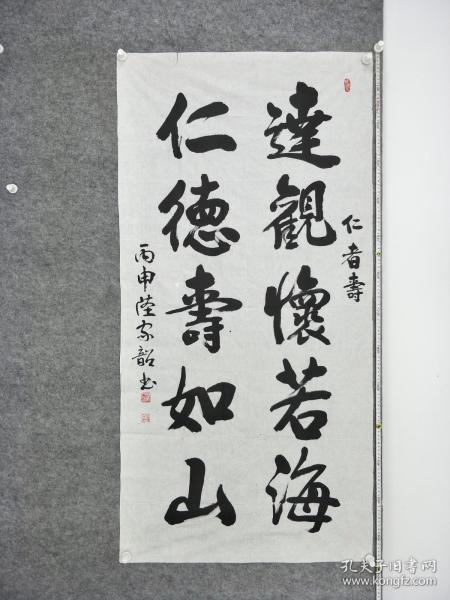 仁者壽
達觀懷若海
仁德壽如山
丙申陸家韶书
孔夫子旧书网
www.kongfz.com